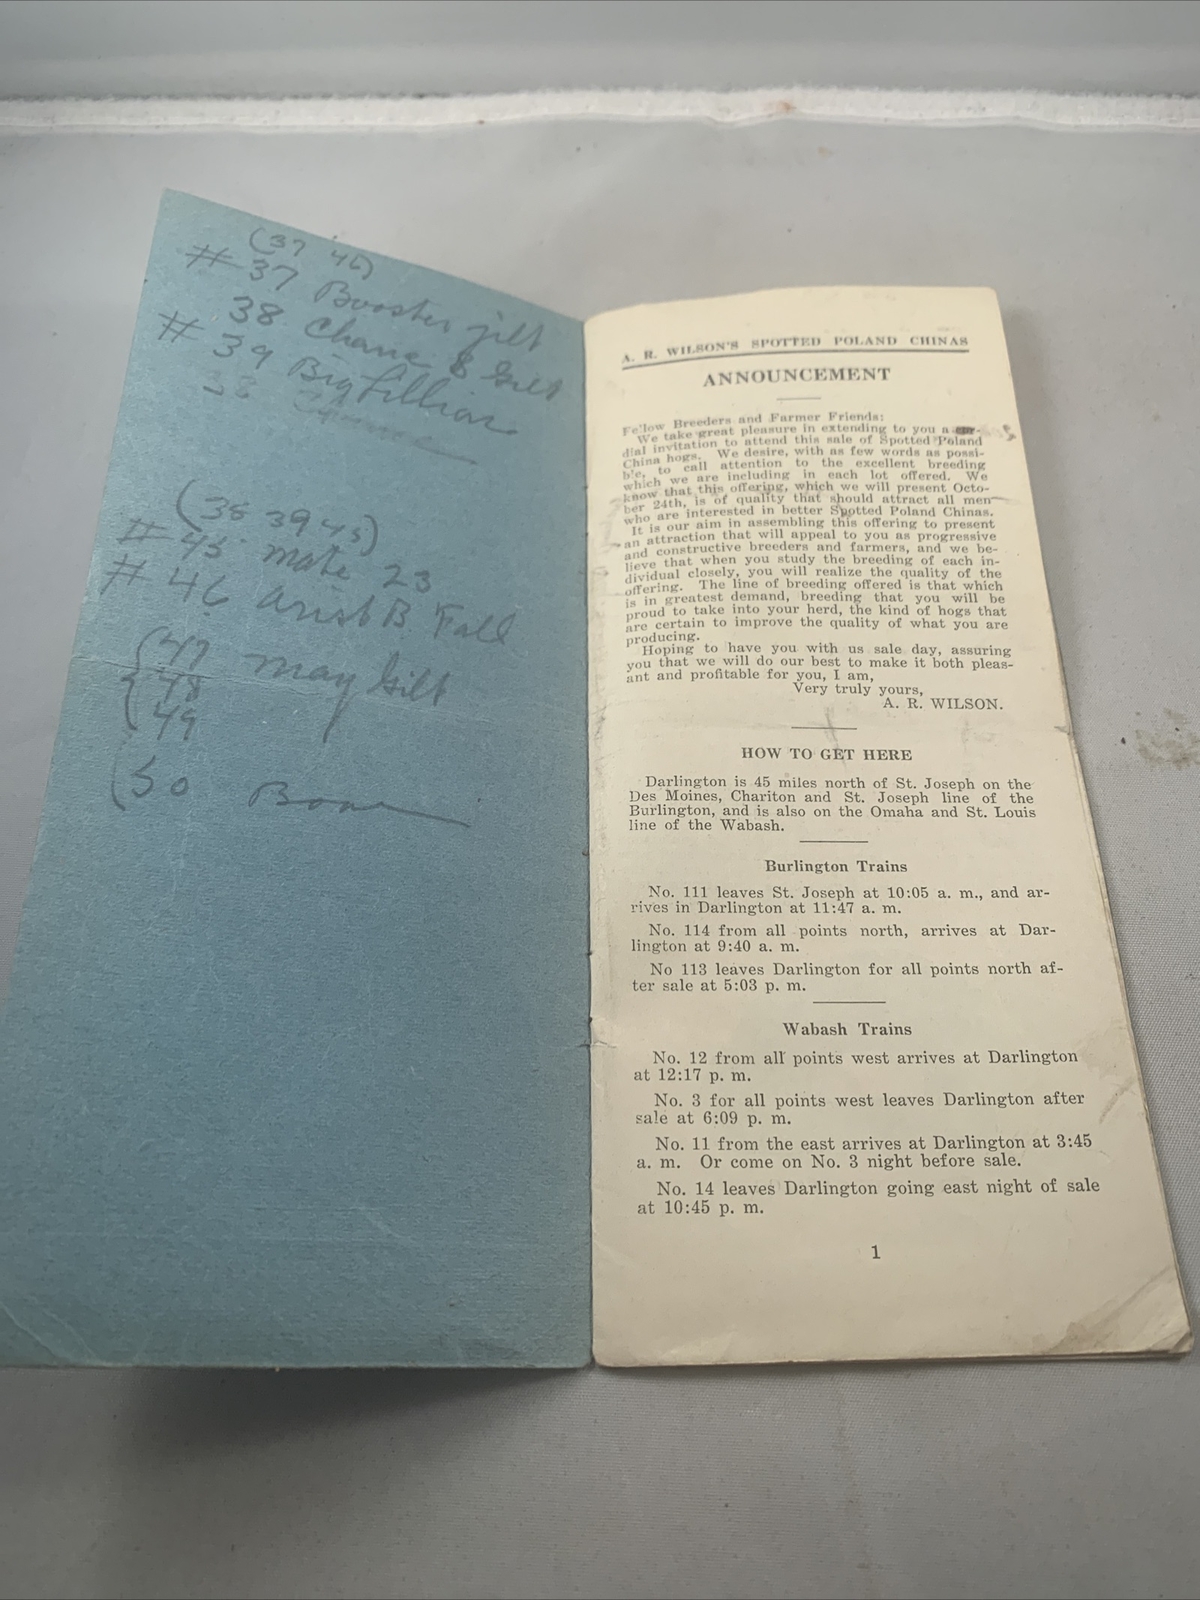 (37 46)
# 37 Booster gilt
38 Gilt
# 39 Big
38
(38 39 45)
# 45 mate 23
# 46 B Fall
47 may Gilt
48
49
(50
A. R. WILSON'S SPOTTED POLAND CHINAS
ANNOUNCEMENT
Fellow Breeders and Farmer Friends:
We take great pleasure in extending to you a cor-
dial invitation to attend this sale of Spotted Poland
China hogs. We desire, with as few words as possi-
ble, to call attention to the excellent breeding
which we are including in each lot offered. We
know that this offering, which we will present Octo-
ber 24th, is of quality that should attract all men
who are interested in better Spotted Poland Chinas.
It is our aim in assembling this offering to present
an attraction that will appeal to you as progressive
and constructive breeders and farmers, and we be-
lieve that when you study the breeding of each in-
dividual closely, you will realize the quality of the
offering. The line of breeding offered is that which
is in greatest demand, breeding that you will be
proud to take into your herd, the kind of hogs that
are certain to improve the quality of what you are
producing.
Hoping to have you with us sale day, assuring
you that we will do our best to make it both pleas-
ant and profitable for you, I am,
Very truly yours,
A. R. WILSON.
HOW TO GET HERE
Darlington is 45 miles north of St. Joseph on the
Des Moines, Chariton and St. Joseph line of the
Burlington, and is also on the Omaha and St. Louis
line of the Wabash.
Burlington Trains
No. 111 leaves St. Joseph at 10:05 a. m., and ar-
rives in Darlington at 11:47 a. m.
No. 114 from all points north, arrives at Dar-
lington at 9:40 a. m.
No 113 leaves Darlington for all points north af-
ter sale at 5:03 p. m.
Wabash Trains
No. 12 from all points west arrives at Darlington
at 12:17 p. m.
No. 3 for all points west leaves Darlington after
sale at 6:09 p. m.
No. 11 from the east arrives at Darlington at 3:45
a. m. Or come on No. 3 night before sale.
No. 14 leaves Darlington going east night of sale
at 10:45 p. m.
1